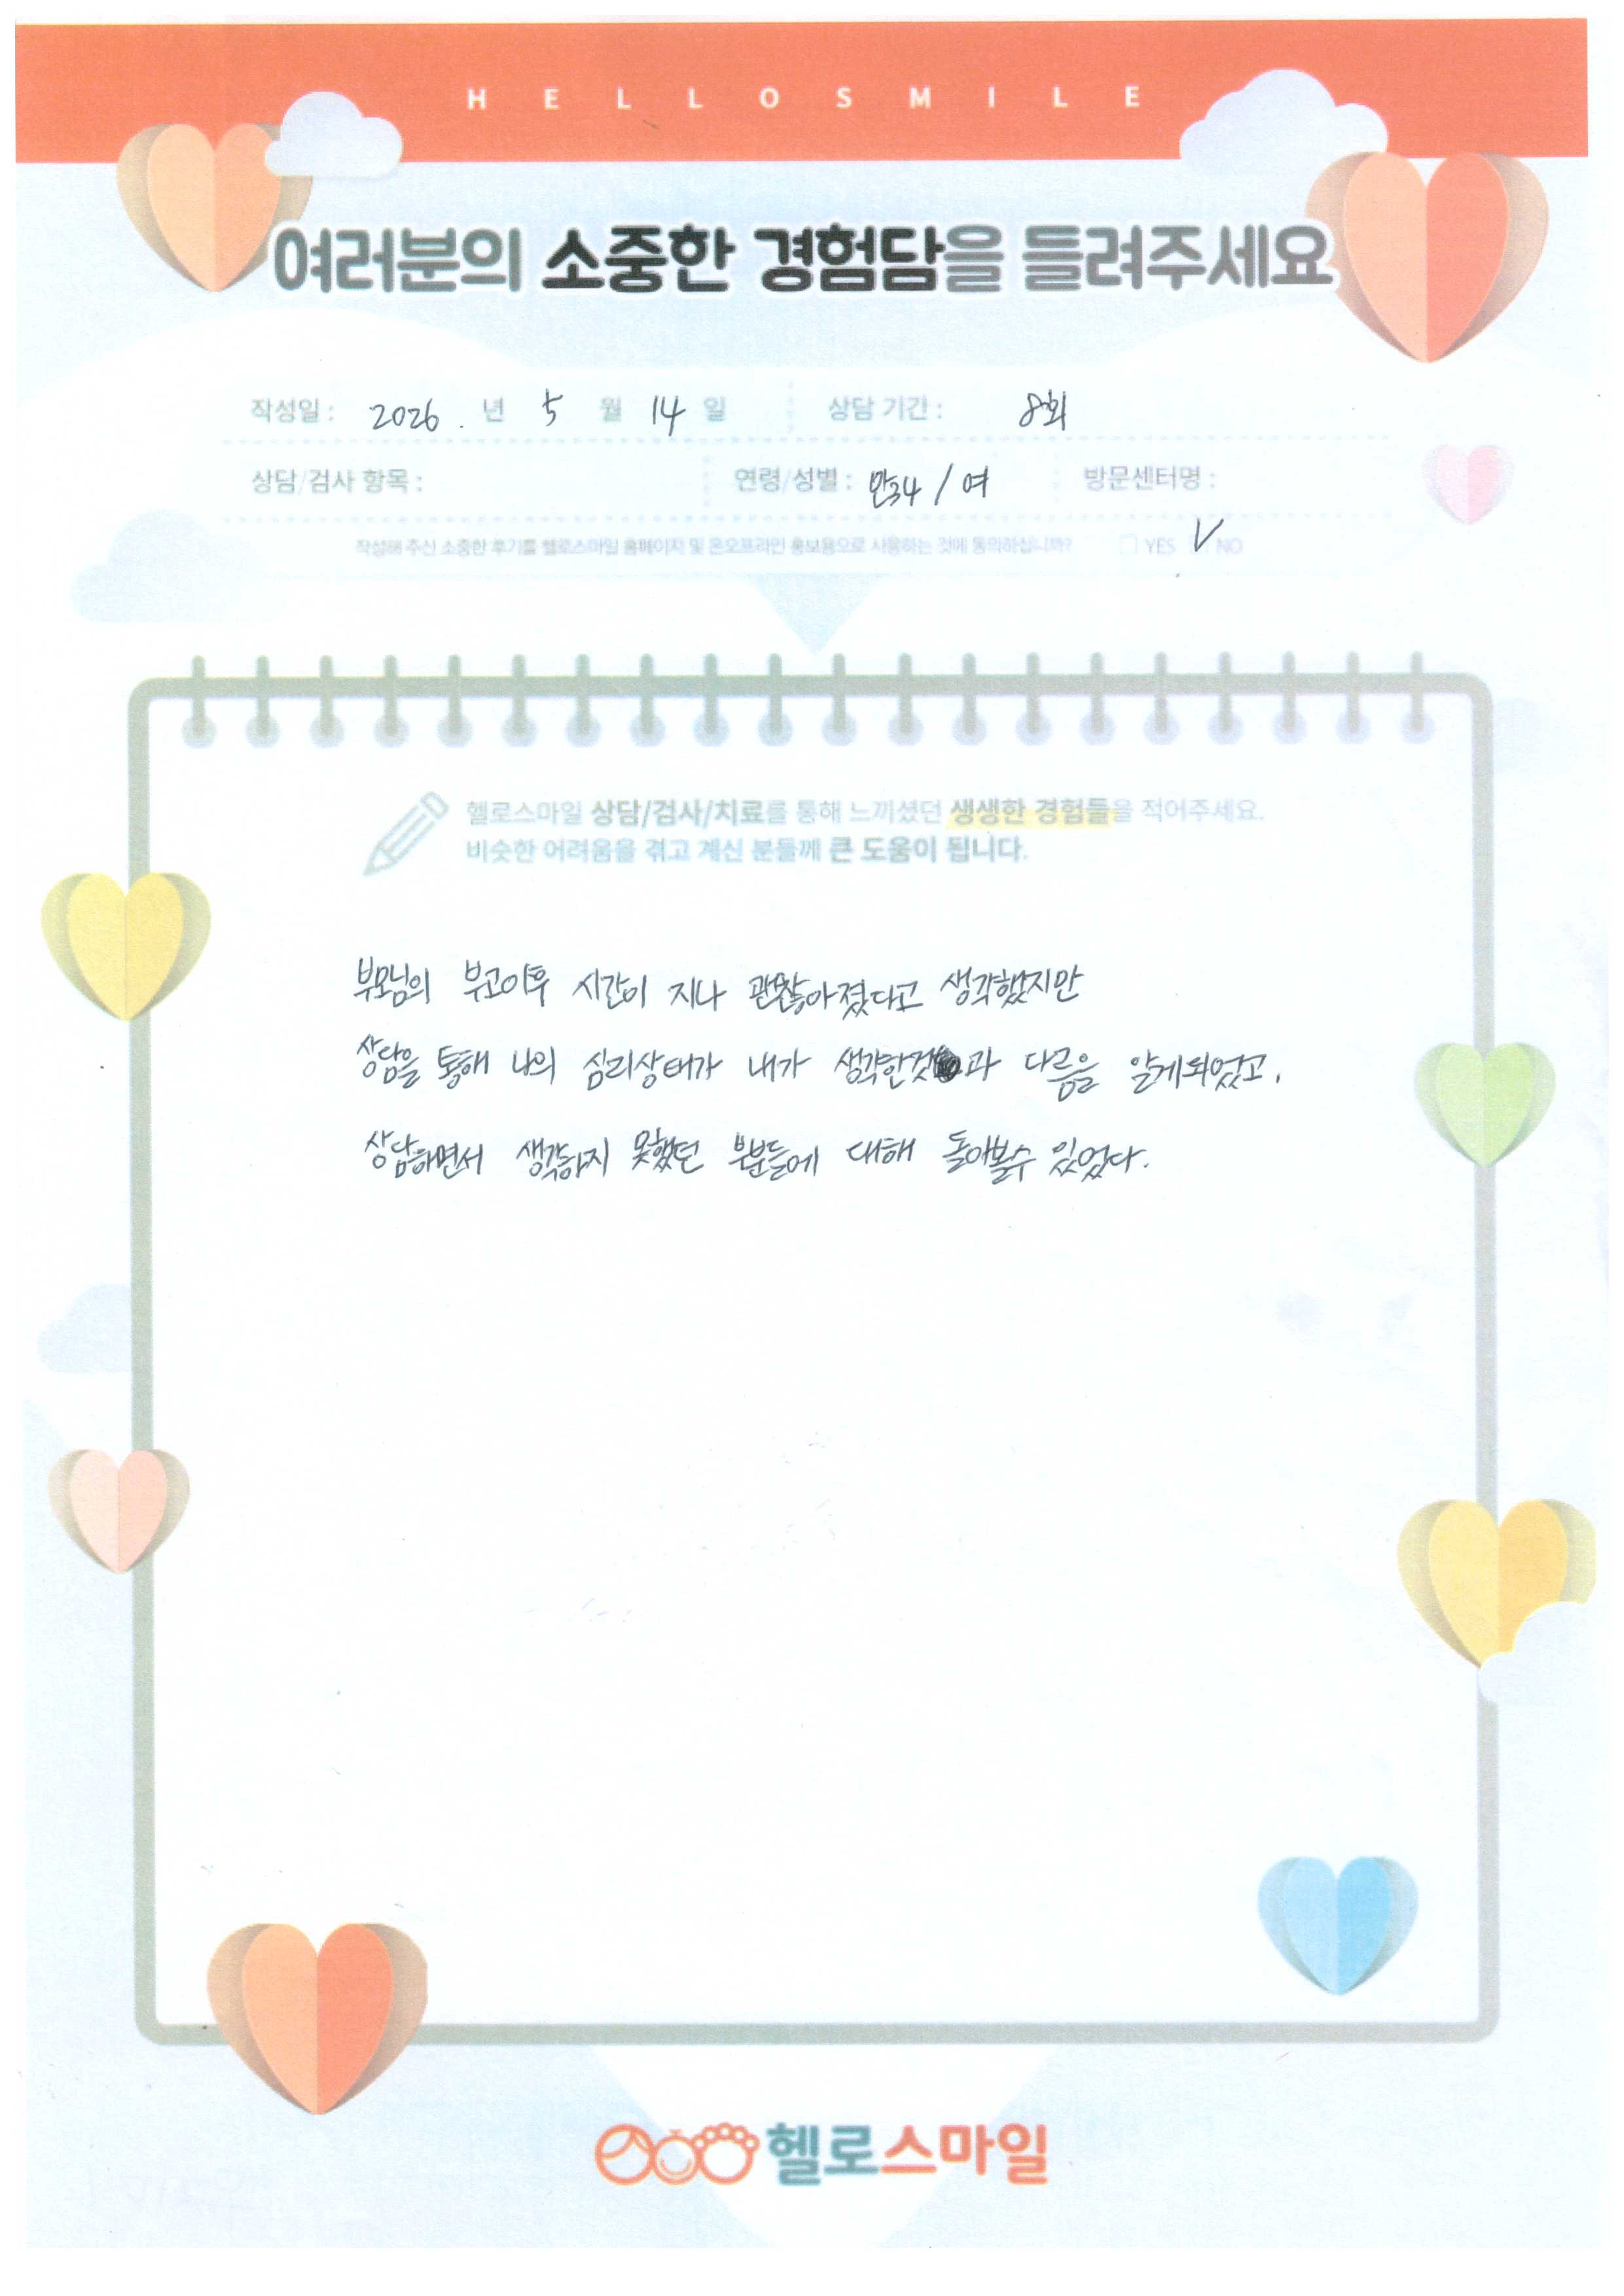 HELLOSMILE
여러분의 소중한 경험담을 들려주세요
작성일 : 2026. 년 5 월 14 일 상담 기간 : 8회
상담/검사 항목 : 연령/성별 : 만34 / 여 방문센터명 :
작성해 주신 소중한 후기를 헬로스마일 홈페이지 및 온오프라인 홍보용으로 사용하는 것에 동의하십니까? YES V NO
헬로스마일 상담/검사/치료를 통해 느끼셨던 생생한 경험들을 적어주세요.
비슷한 어려움을 겪고 계신 분들께 큰 도움이 됩니다.
부모님의 부고이후 시간이 지나 괜찮아졌다고 생각했지만
상담을 통해 나의 심리상태가 내가 생각한것과 다름을 알게되었고,
상담하면서 생각하지 못했던 부분들에 대해 돌아볼수 있었다.
헬로스마일